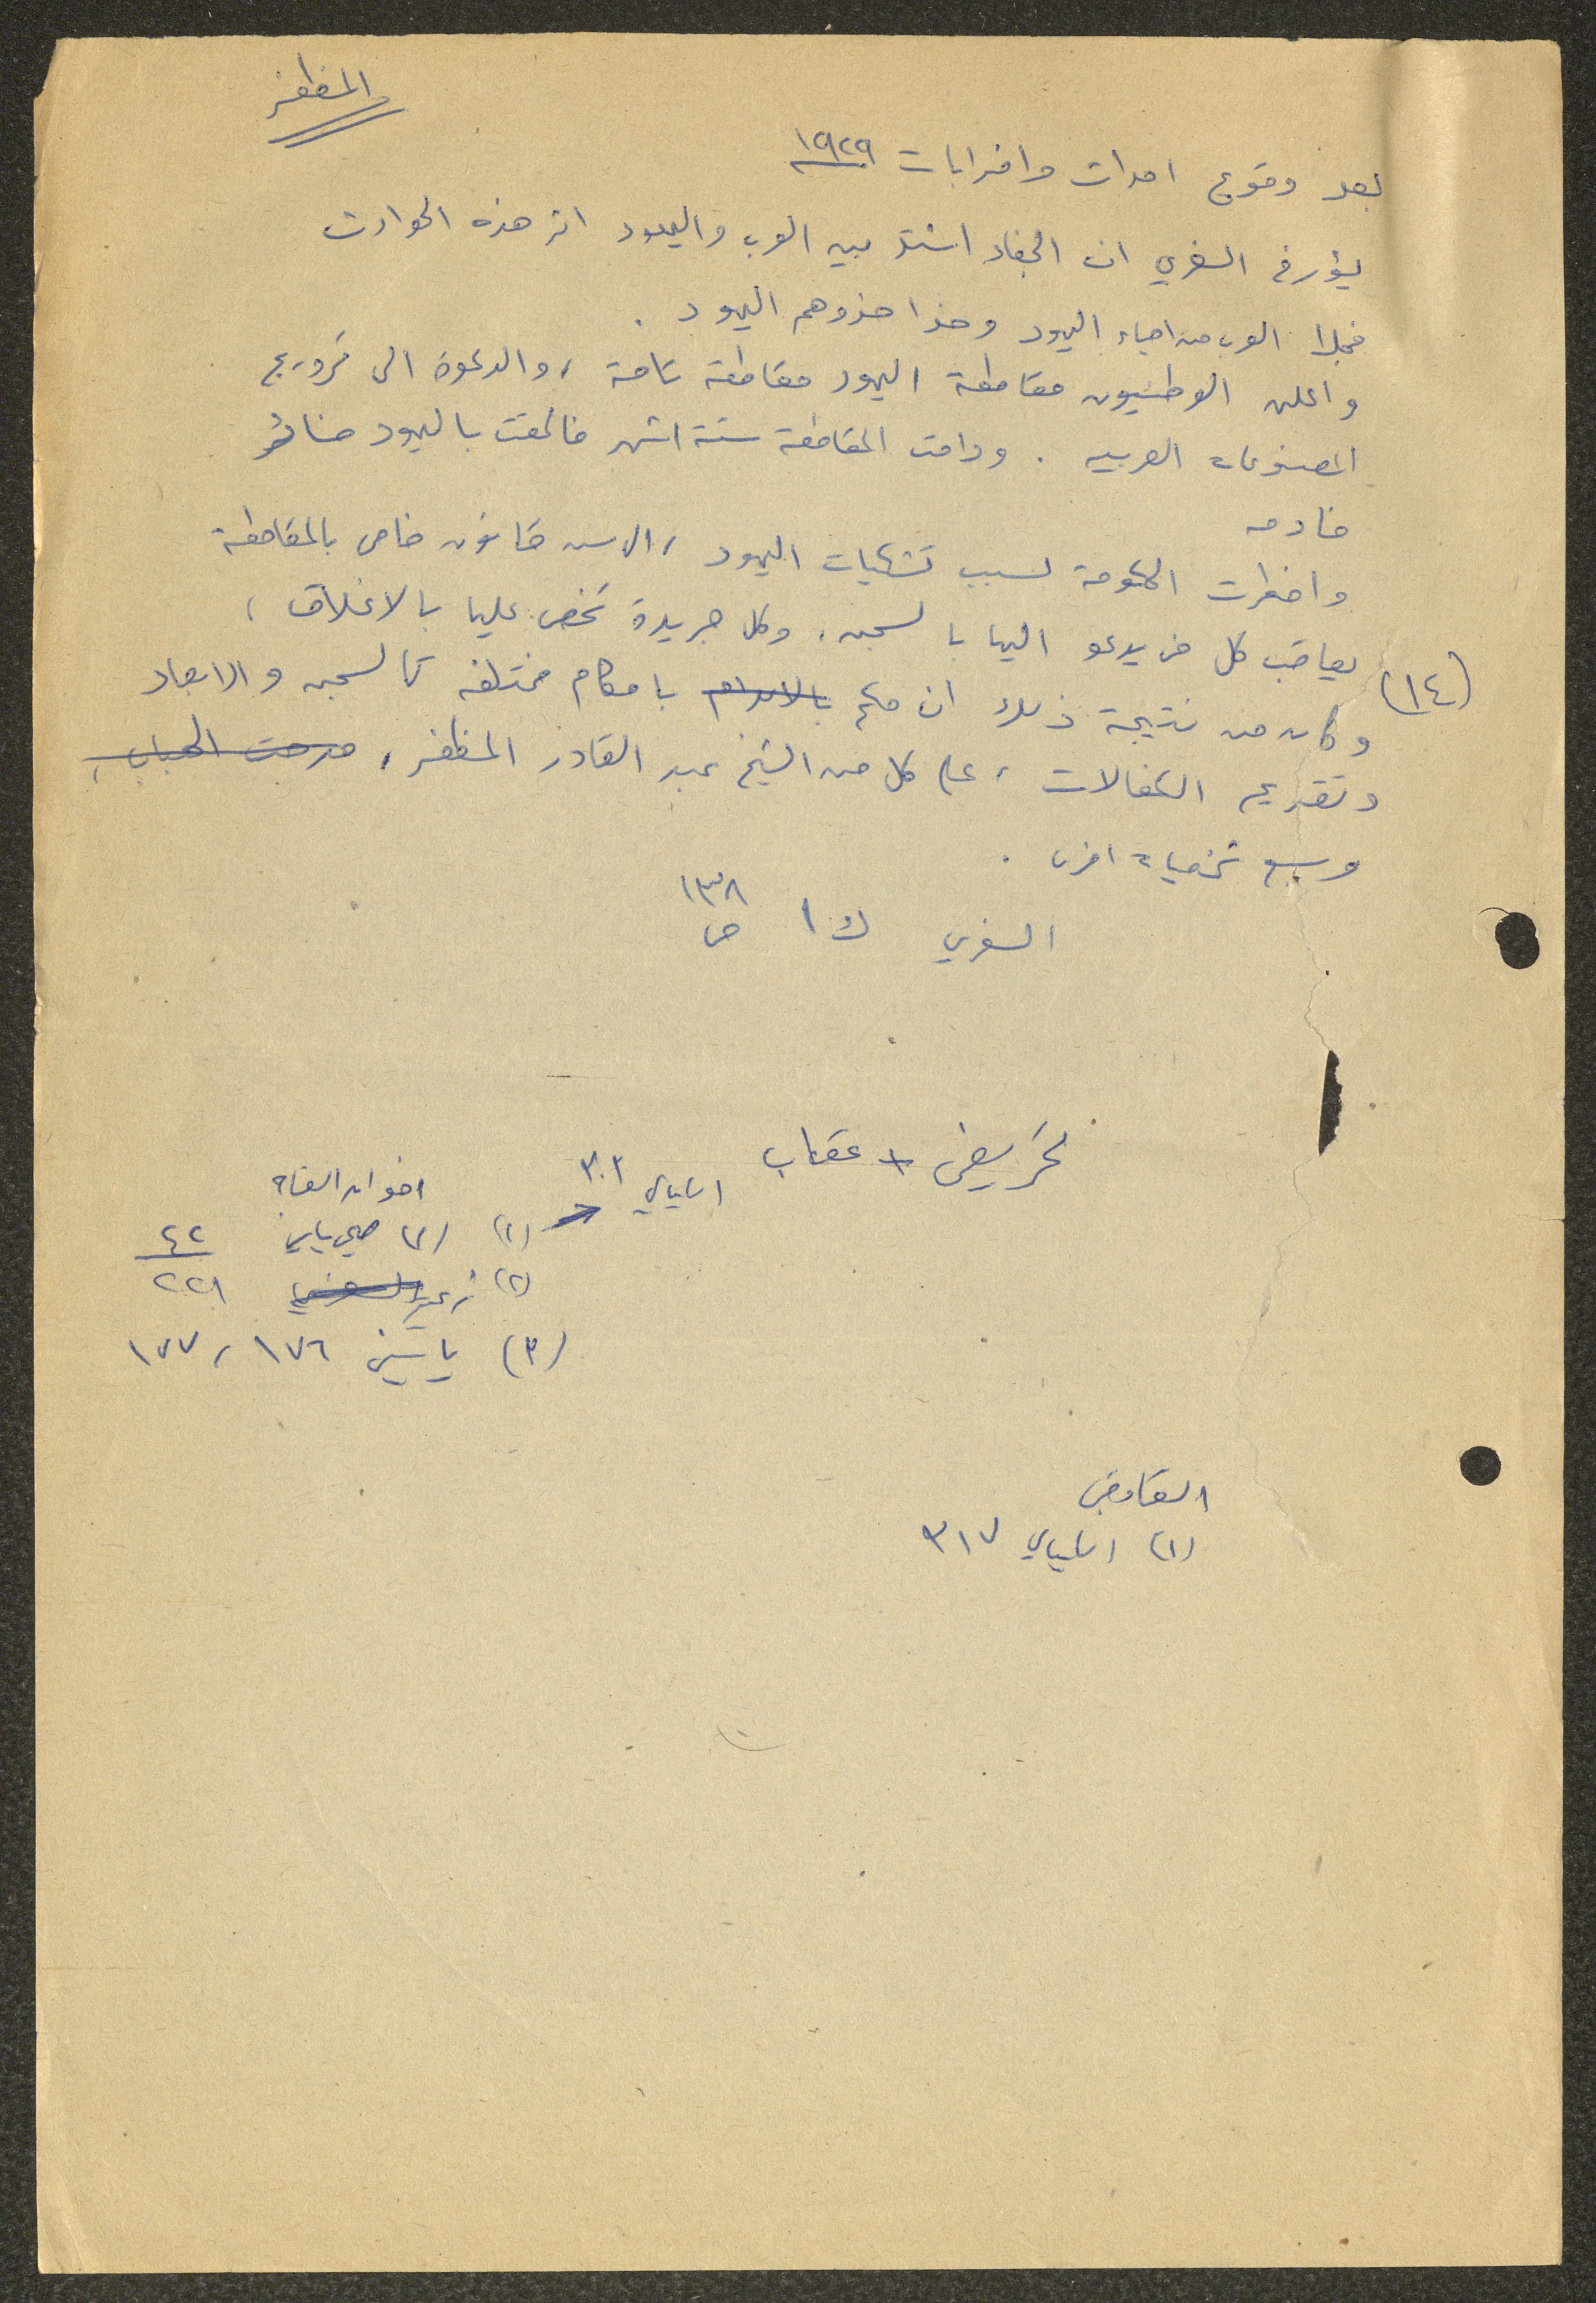 المظفر
بعد وقوع احداث واضرابات ١٩٢٩
يؤرخ السفري ان الجفاء اشتد بين العرب واليهود اثر هذه الحوادث
فجلا العرب من احياء اليهود وحذا حذوهم اليهود .
واعلن الوطنيون مقاطعة اليهود مقاطعة تامة ، والدعوة الى ترويج
المصنوعات العربيه . ودامت المقاطعة ستة اشهر فالحقت باليهود خسائر
فادحه
واضطرت الحكومة لسبب تشكيات اليهود ، الى سن قانون خاص بالمقاطعة
يعاقب كل من يدعو اليها بالسجن ، وكل جريدة تحض عليها بالاغلاق ،
(١٤) وكان من نتيجة ذلك ان حكم بالاعدام باحكام مختلفه كالسجن والابعاد
وتقديم الكفالات ، على كل من الشيخ عبد القادر المظفر ،
وسبع شخصيات اخرى .
السفري ك ١ ص ١٣٨
تحريض + عقاب
الكيالي ٣٠٢
اخوان القسام
(١) صبحي ياسين ٤٢
(٢) زعيتر ٢٢١
(٣) ياسين ١٧٦ ، ١٧٧
التفاوض
(١) الكيالي ٣١٧